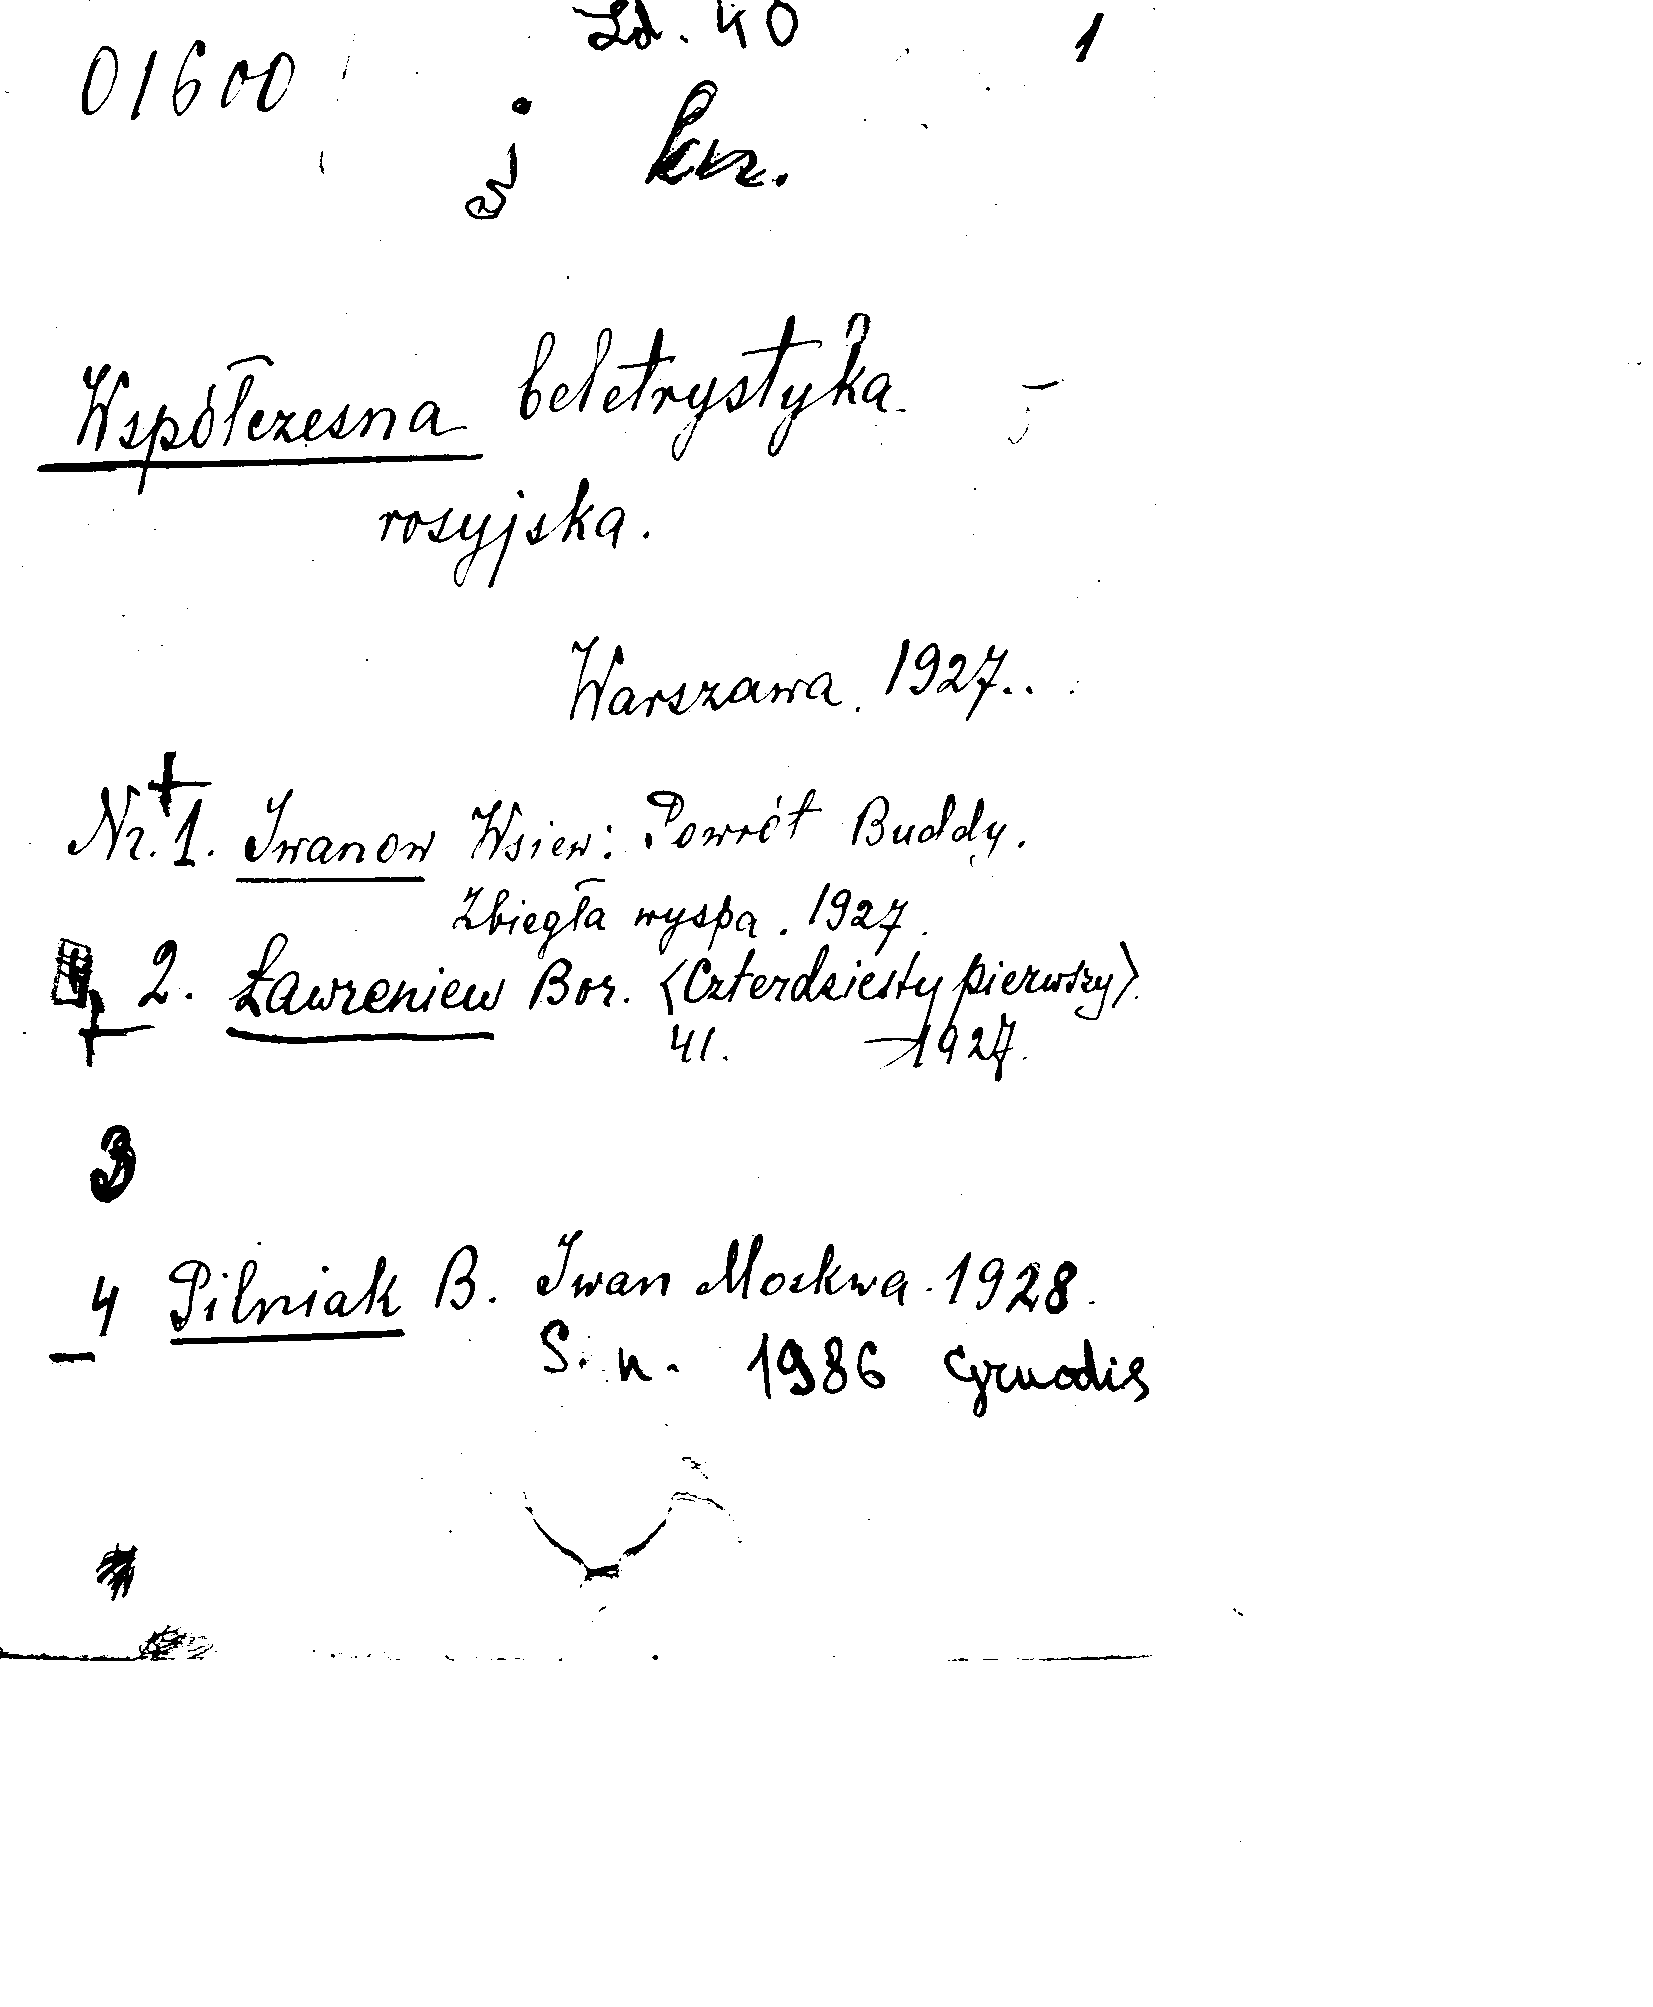 Ld. 40
1
01600
kn.
Współczesna beletrystyka
rosyjska.
Warszawa. 1927..
Nr. 1. Iwanow Wsiew: Powrót Buddy.
Zbiegła wyspa. 1927.
2. Ławreniew Bor. <Czterdziesty pierwszy>.
41. 1927.
3
4 Pilniak B. Iwan Moskwa. 1928.
S. n. 1986 gruodis